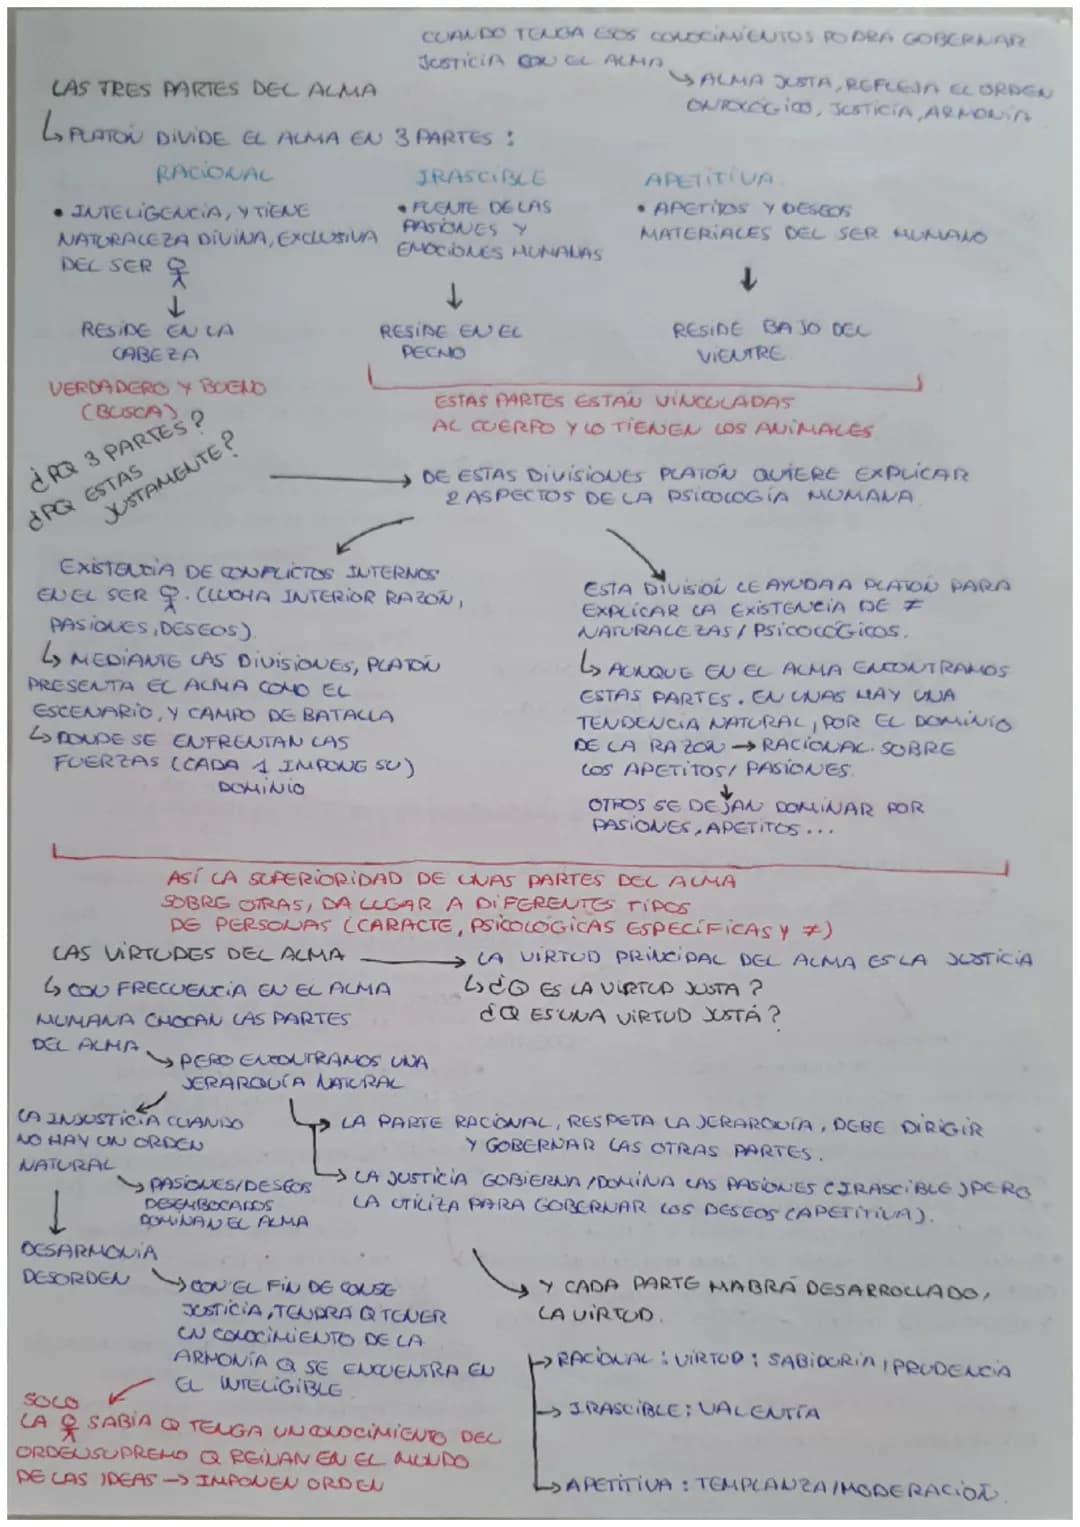 CUANDO TENGA ESOS CONOCIMIENTOS PODRA GOBERNAR
JUSTICIA CON EL ALMA
↳ ALMA JUSTA, REFLEJA EL ORDEN
ONTOLÓGICO, JUSTICIA, ARMONÍA
LAS TRES PARTES DEL ALMA
↳ PLATÓN DIVIDE EL ALMA EN 3 PARTES :
RACIONAL
• INTELIGENCIA, Y TIENE
NATURALEZA DIVINA, EXCLUSIVA
DEL SER
↓
RESIDE EN LA
CABEZA
VERDADERO Y BUENO
(BUSCA)
IRASCIBLE
• FUENTE DE LAS
PASIONES Y
EMOCIONES HUMANAS
↓
RESIDE EN EL
PECHO
APETITIVA
• APETITOS Y DESEOS
MATERIALES DEL SER HUMANO
↓
RESIDE BAJO DEL
VIENTRE
ESTAS PARTES ESTÁN VINCULADAS
AL CUERPO Y LO TIENEN LOS ANIMALES
¿PQ 3 PARTES?
¿PQ ESTAS
JUSTAMENTE?
→ DE ESTAS DIVISIONES PLATÓN QUIERE EXPLICAR
2 ASPECTOS DE LA PSICOLOGÍA HUMANA
EXISTENCIA DE CONFLICTOS INTERNOS
EN EL SER . (LUCHA INTERIOR RAZÓN,
PASIONES, DESEOS)
↳ MEDIANTE LAS DIVISIONES, PLATÓN
PRESENTA EL ALMA COMO EL
ESCENARIO, Y CAMPO DE BATALLA
↳ DONDE SE ENFRENTAN LAS
FUERZAS (CADA 1 IMPONE SU)
DOMINIO
ESTA DIVISIÓN LE AYUDA A PLATÓN PARA
EXPLICAR LA EXISTENCIA DE ≠
NATURALEZAS / PSICOLÓGICOS.
↳ AUNQUE EN EL ALMA ENCONTRAMOS
ESTAS PARTES. EN UNAS HAY UNA
TENDENCIA NATURAL, POR EL DOMINIO
DE LA RAZÓN → RACIONAL SOBRE
LOS APETITOS / PASIONES.
↓
OTROS SE DEJAN DOMINAR POR
PASIONES, APETITOS...
ASÍ LA SUPERIORIDAD DE UNAS PARTES DEL ALMA
SOBRE OTRAS, DA LUGAR A DIFERENTES TIPOS
DE PERSONAS (CARACTE, PSICOLÓGICAS ESPECÍFICAS Y ≠)
LAS VIRTUDES DEL ALMA → LA VIRTUD PRINCIPAL DEL ALMA ES LA JUSTICIA
↳ ¿Q ES LA VIRTUD JUSTA?
¿Q ES UNA VIRTUD JUSTA?
↳ CON FRECUENCIA EN EL ALMA
HUMANA CHOCAN LAS PARTES
DEL ALMA
↳ PERO ENCONTRAMOS UNA
JERARQUÍA NATURAL
↳ LA PARTE RACIONAL, RESPETA LA JERARQUÍA, DEBE DIRIGIR
Y GOBERNAR LAS OTRAS PARTES.
↳ LA JUSTICIA GOBIERNA / DOMINA LAS PASIONES (IRASCIBLE) PERO
LA UTILIZA PARA GOBERNAR LOS DESEOS (APETITIVA).
LA INJUSTICIA CUANDO
NO HAY UN ORDEN
NATURAL
↳ PASIONES/DESEOS
DESEMBOCADOS
DOMINAN EL ALMA
↓
DESARMONIA
DESORDEN
↳ CON EL FIN DE CONSE
JUSTICIA, TENDRA Q TENER
UN CONOCIMIENTO DE LA
ARMONÍA Q SE ENCUENTRA EN
EL INTELIGIBLE
SOLO
LA SABIA Q TENGA UN CONOCIMIENTO DEL
ORDEN SUPREMO Q REINAN EN EL MUNDO
DE LAS IDEAS → IMPONEN ORDEN
→ Y CADA PARTE HABRÁ DESARROLLADO,
LA VIRTUD.
→ RACIONAL : VIRTUD : SABIDURIA / PRUDENCIA
→ IRASCIBLE: VALENTÍA
↳ APETITIVA : TEMPLANZA / MODERACIÓN